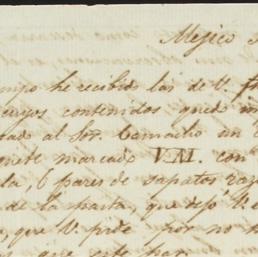 Mejico
mpo he recibido las de V.
cuyos contenidos quedo
ado al Sor. Camacho un
nete marcado V.M. con
la, 6 pares de zapatos
de la hasta, que dejó
, que V. pide por no
que este par